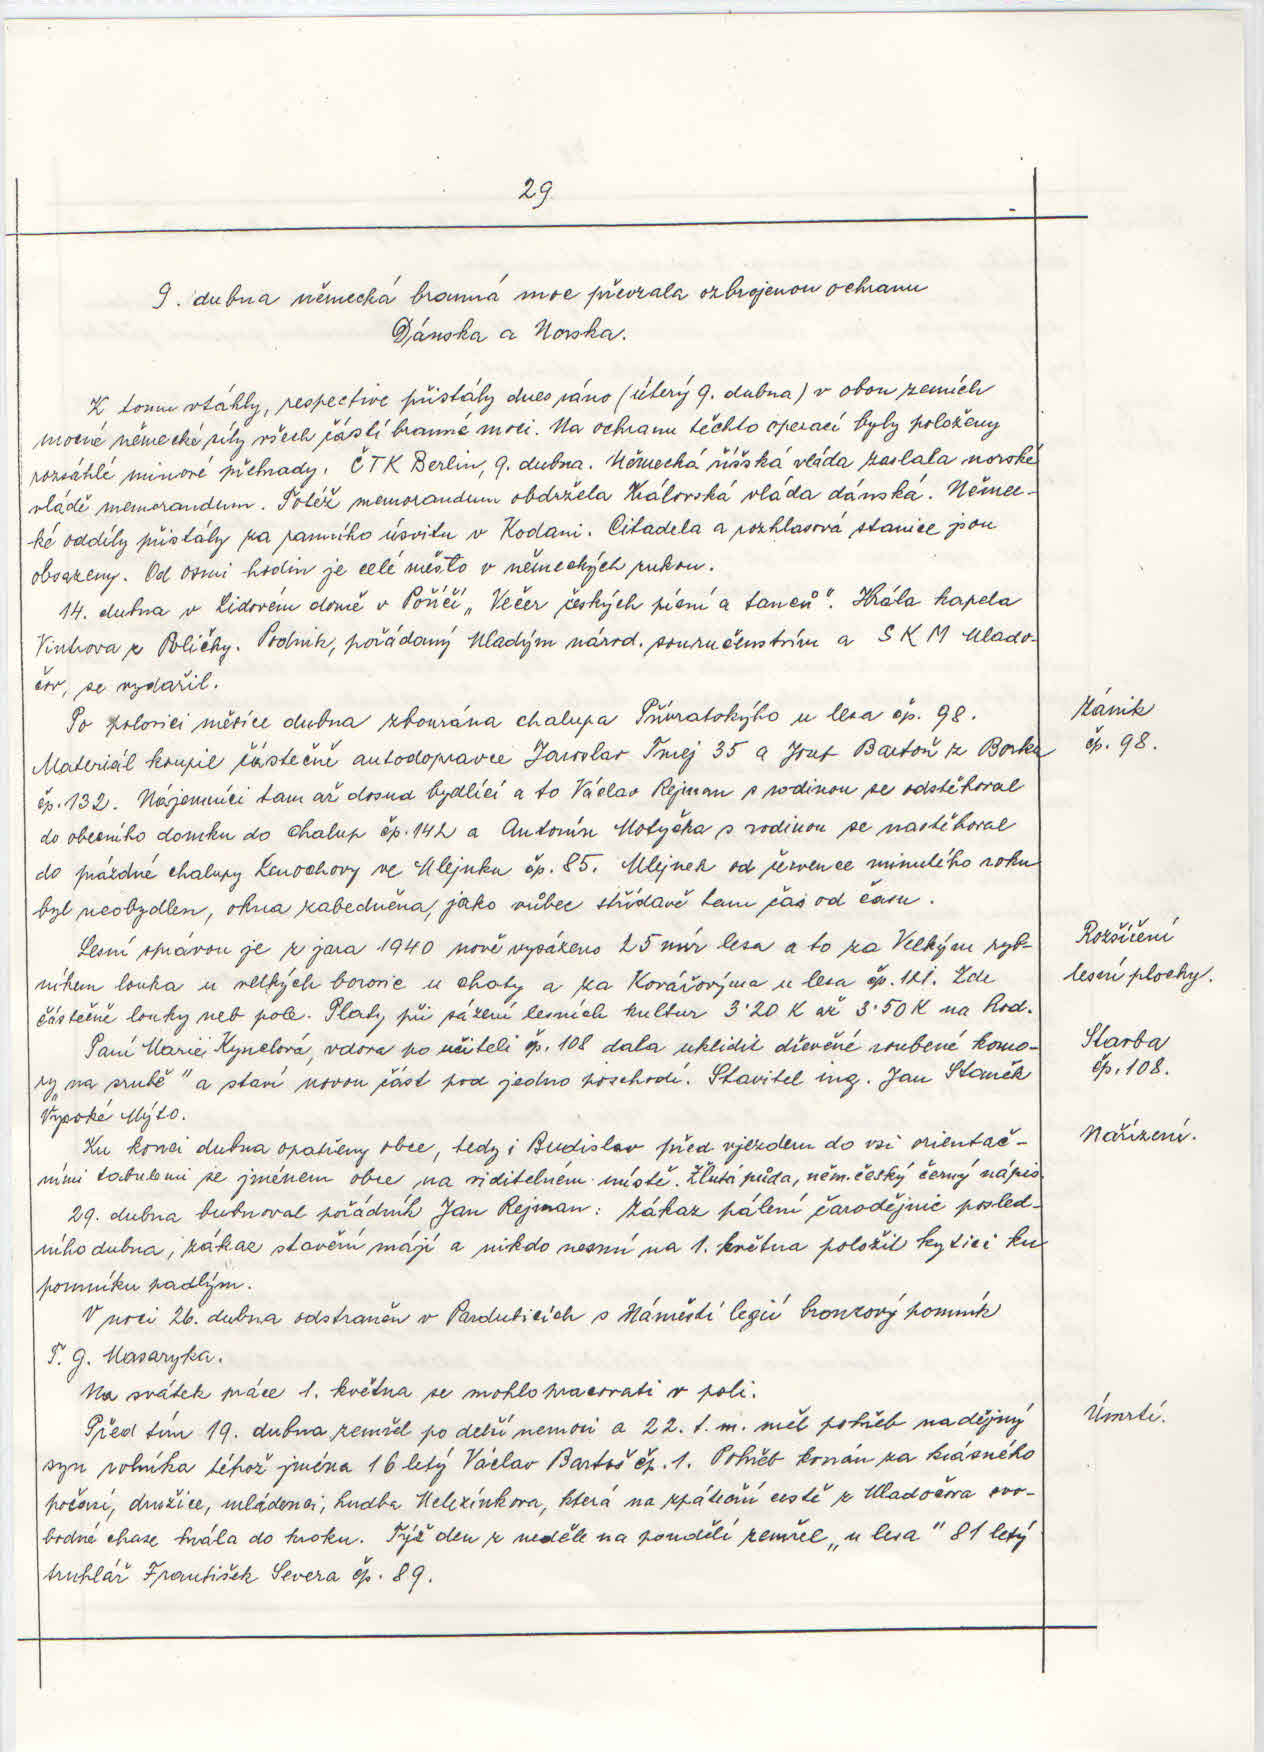 29
9. dubna německá branná moc převzala ozbrojenou ochranu
Dánska a Norska.
K tomu vtáhly, respective přistály dnes ráno (úterý 9. dubna) v obou zemích
mocné německé síly všech částí branné moci. Na ochranu těchto operací byly položeny
rozsáhlé minové přehrady. ČTK Berlin, 9. dubna. Německá říšská vláda zaslala norské
vládě memorandum. Totéž memorandum obdržela Královská vláda dánská. Němec-
ké oddíly přistály za ranního úsvitu v Kodani. Citadela a rozhlasová stanice jsou
obsazeny. Od osmi hodin je celé město v německých rukou.
14. dubna v Lidovém domě v Poříčí „Večer českých písní a tanců". Hrála kapela
z Poličky. Podnik, pořádaný Mladým národ. souručenstvím a S K M Mlado-
čov, se vydařil.
Po polovici měsíce dubna zbourána chalupa u lesa čp. 98.
Zánik
Materiál koupil částečně autodopravce Jaroslav Tmej 35 a Josef Bartoň z Borku
čp. 98.
čp. 132. Nájemníci tam až dosud bydlící a to Václav Rejman s rodinou se odstěhoval
do obecního domku do chalup čp. 142 a Antonín Motyčka s rodinou se nastěhoval
do prázdné chalupy ve Mlejnku čp. 85. Mlejnek od července minulého roku
byl neobydlen, okna zabedněna, jako vůbec střídavě tam čas od času.
Lesní správou je z jara 1940 nově vysázeno 25 měr lesa a to za Velkým ryb-
Rozšíření
níkem louka u velkých borovic u chaty a za Kovářovýma u lesa čp. 121. Zde
lesní plochy.
částečně louky neb pole. Platy při sázení lesních kultur 3·20 K až 3·50 K na hod.
Paní Marie Kynclová, vdova po učiteli čp. 108 dala uklidit dřevěné roubené komo-
Stavba
ry „na srubě" a staví novou část pod jedno poschodí. Stavitel ing. Jan Staněk
čp. 108.
Vysoké Mýto.
Ku konci dubna opatřeny obce, tedy i Budislav před vjezdem do vsi orientač-
Nařízení.
ními tabulemi se jménem obce na viditelném místě. Žlutá půda, něm. český černý nápis.
29. dubna bubnoval pořádník Jan Rejman: Zákaz pálení čarodějnic posled-
ního dubna, zákaz stavění májí a nikdo nesmí na 1. května položit kytici ku
pomníku padlým.
V noci 26. dubna odstraněn v Pardubicích s Náměstí legií bronzový pomník
T. G. Masaryka.
Na svátek práce 1. května se mohlo pracovati v poli.
Před tím 19. dubna zemřel po delší nemoci a 22. t. m. měl pohřeb nadějný
Úmrtí.
syn rolníka téhož jména 16 letý Václav Bartoš čp. 1. Pohřeb konán za krásného
počasí, družice, mládenci, hudba Melezínkova, která na zpáteční cestě z Mladočova svo-
bodné chase hrála do kroku. Týž den z neděle na pondělí zemřel „u lesa" 81 letý
truhlář František Severa čp. 89.